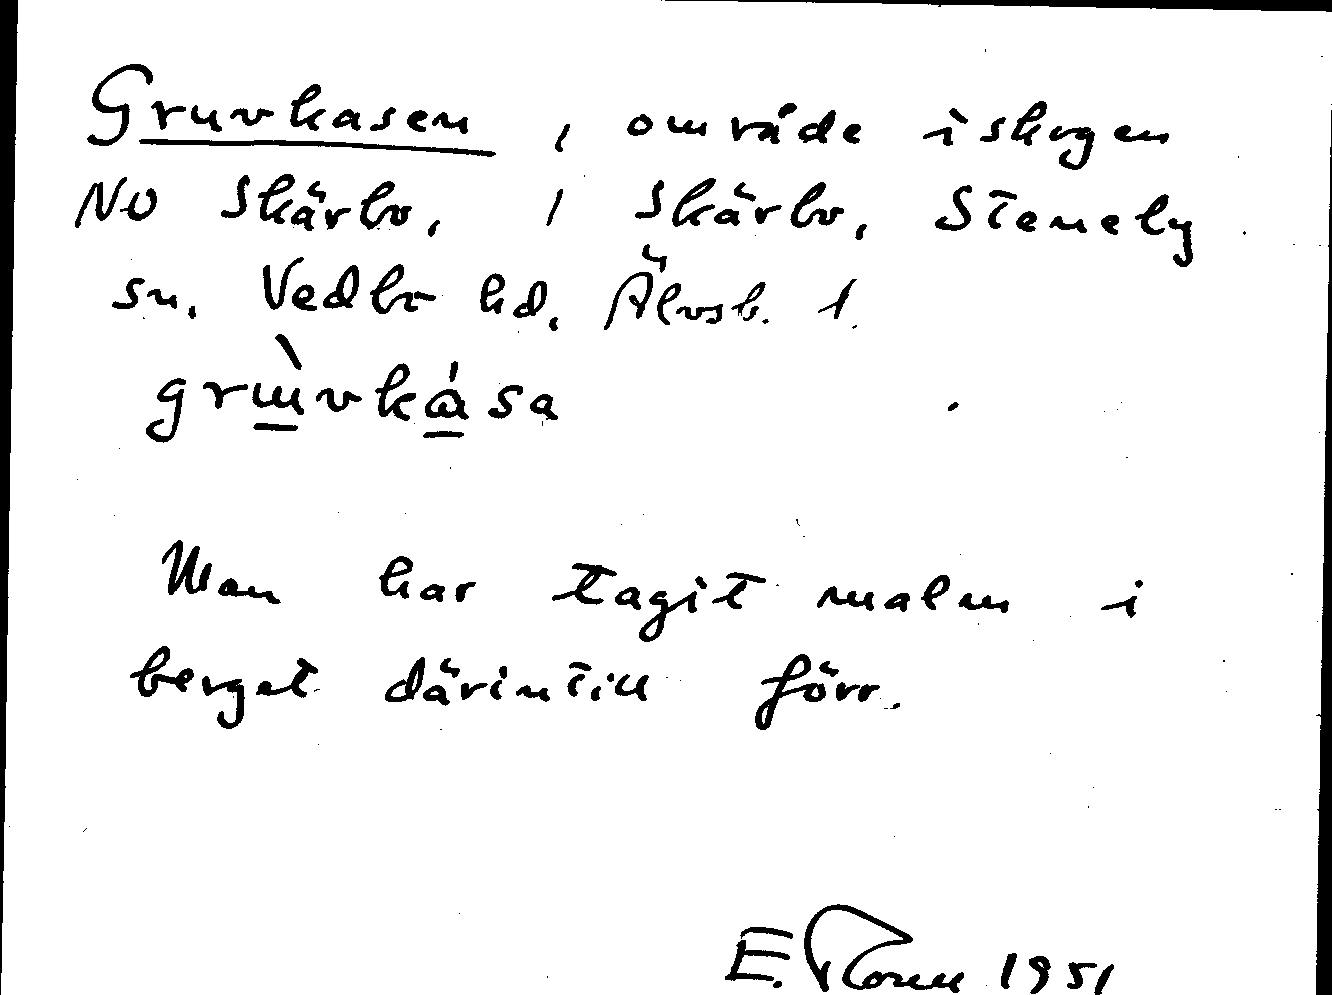 Gruvkasen, område i skogen
NO Skärbo, 1 Skärbo, Steneby
sn. Vedbo hd. Älvsb. l.
grùvkása
Man har tagit malm i
berget därintill förr.
E. 1951